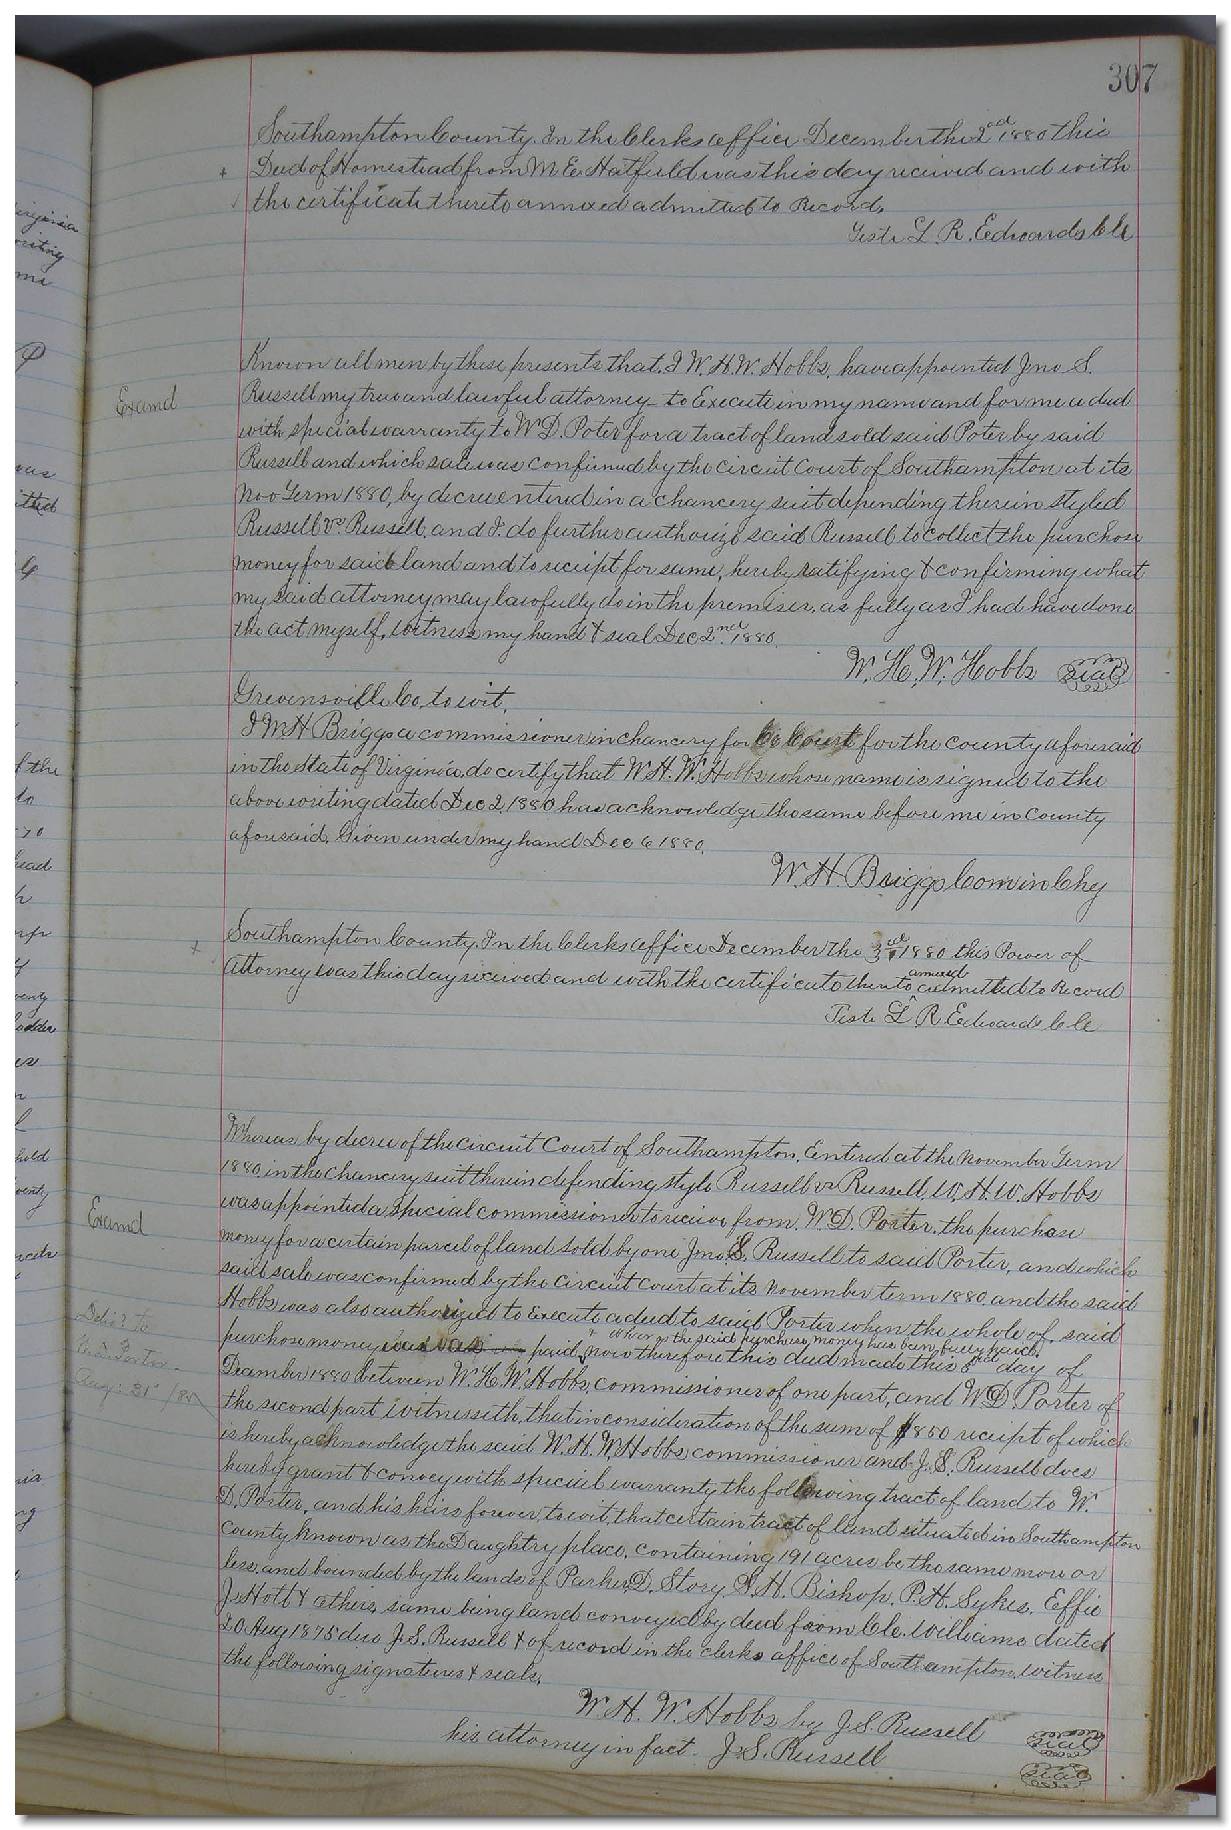 307
Southampton County. In the Clerks office December the 2nd 1880 this
Deed of Homestead from M E Hatfield was this day received and with
the certificate thereto annexed admitted to Record.
Teste L. R. Edwards Clk
Known all men by these presents that I W. H. W. Hobbs, have appointed Jno S.
Examd
Russell my true and lawful attorney to Execute in my name and for me a deed
with special warranty to W D. Poter for a tract of land sold said Poter by said
Russell and which sale was confirmed by the circuit Court of Southampton at its
Nov Term 1880, by decree entered in a chancery suit depending therein styled
Russell vs. Russell, and I do further authorize said Russell to collect the purchase
money for said land and to receipt for same, hereby ratifying & confirming what
my said attorney may lawfully do in the premises, as fully as I had have done
the act myself, witness my hand & seal Dec 2nd 1880.
W. H. W. Hobbs Seal
Greensville Co, to wit,
I W H Briggs a commissioner in chancery for Co Court for the county aforesaid
in the State of Virginia, do certify that W. H. W. Hobbs whose name is signed to the
above writing dated Dec 2, 1880 has acknowledge the same before me in County
aforesaid. Given under my hand Dec 6 1880.
W. H. Briggs Com in Chy
Southampton County. In the Clerks office December the 1880 this Power of
Attorney was this day received and with the certificate thereto annexed admitted to Record
Teste L R Edwards Clk
Whereas by decree of the circuit Court of Southampton, Entered at the November Term
1880, in the chancery suit therein defending style Russell vs Russell, W. H. W. Hobbs
was appointed a special commissioner to receive from W. D. Porter, the purchase
Examd
money for a certain parcel of land sold by one Jno. S. Russell to said Porter, and which
said sale was confirmed by the circuit Court at its November term 1880, and the said
Hobbs was also authorized to Execute a deed to said Porter when the whole of said
Deliv'd to
W. D. Porter
Aug: 21st /82
& whereas the said purchase money has been fully paid
purchase money was paid, now therefore this deed made this day of
December 1880 between W. H. W. Hobbs, commissioner of one part, and W D Porter of
the second part Witnesseth, that in consideration of the sum of $850 receipt of which
is hereby acknowledge the said W. H. W. Hobbs, commissioner and J. S. Russell does
hereby grant & convey with special warranty the following tract of land to W.
D. Porter, and his heirs forever, to wit, that certain tract of land situated in Southampton
County known as the Daughtry place, containing 191 acres be the same more or
less, and bounded by the lands of Parker D. Story S. H. Bishop, P. H. Sykes, Effie
J. Holt & others, same being land conveyed by deed from Williams dated
20 Aug 1875 J. S. Russell & of record in the clerks office of Southampton, Witness
the following signatures & seals,
W. H. W. Hobbs by J. S. Russell Seal
his attorney in fact. J. S. Russell Seal